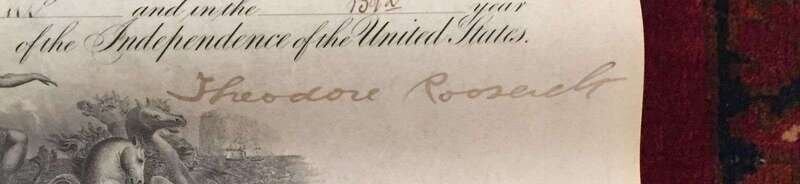 and in the year
of the Independence of the United States.
Theodore Roosevelt